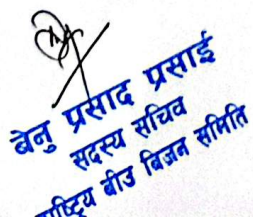 बेनु प्रसाद प्रसाई
सदस्य सचिव
राष्ट्रिय बीउ बिजन समिति